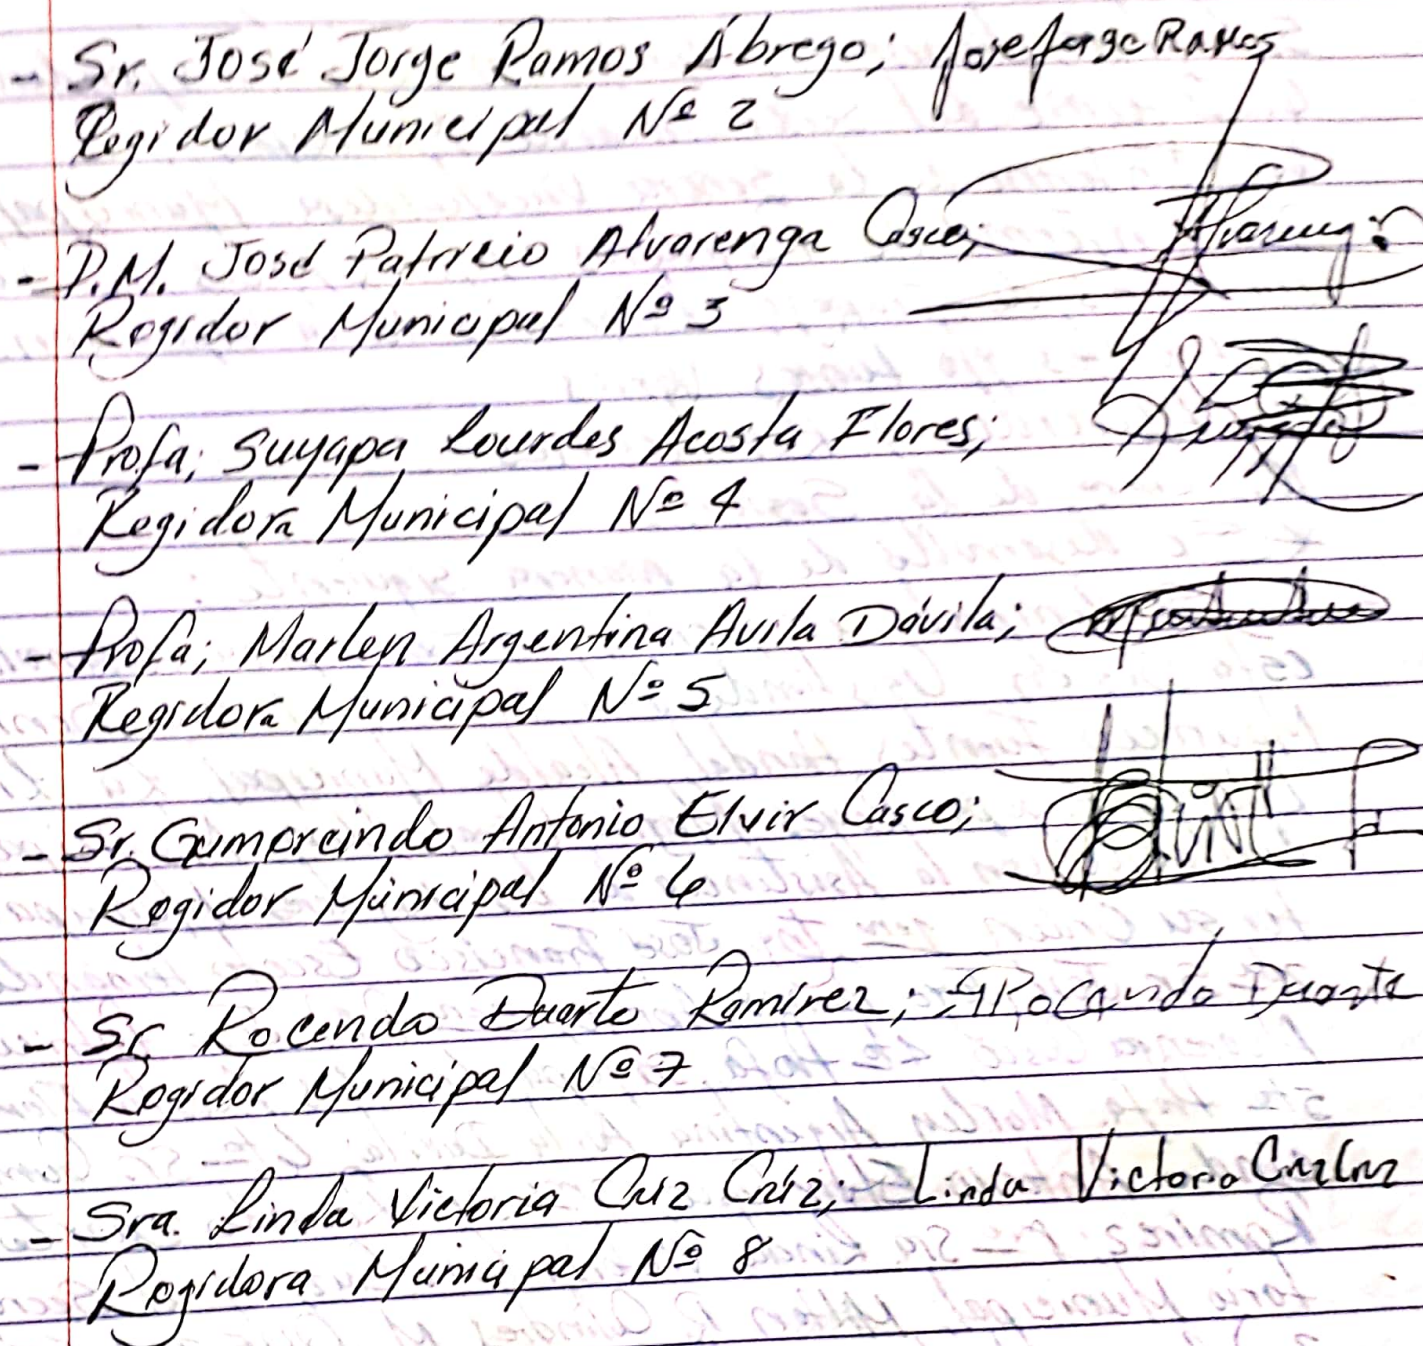 - Sr. José Jorge Ramos Ábrego; Jose Jorge Ramos
Regidor Municipal Nº 2
- P.M. José Patricio Alvarenga Casco;
Regidor Municipal Nº 3
- Profa; Suyapa Lourdes Acosta Flores;
Regidora Municipal Nº 4
- Profa; Marlen Argentina Avila Dávila;
Regidora Municipal Nº 5
- Sr. Gumercindo Antonio Elvir Casco;
Regidor Municipal Nº 6
- Sr Rocendo Duarte Ramírez; Rocendo Duarte
Regidor Municipal Nº 7
- Sra. Linda Victoria Cruz Cruz; Linda Victoria Cruz Cruz
Regidora Municipal Nº 8